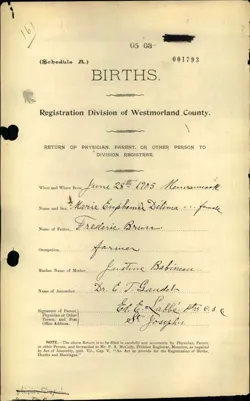 161
05 03
(Schedule A.)
001793
BIRTHS.
Registration Division of Westmorland County.
RETURN OF PHYSICIAN, PARENT, OR OTHER PERSON TO
DIVISION REGISTRAR.
When and Where Born, June 28th 1905 Memramcook
Name and Sex, Marie Euphemie Délima ... female
Name of Father, Frederic Brun
Occupation, farmer
Maiden Name of Mother, Justine Babineau
Name of Attendant, Dr. E. T. Gaudet
Signature of Parent,
Physician or Other
Person, and Post
Office Address.
Ed. E. Labbé Ptre c.s.c
St Joseph
NOTE.—The above Return is to be filled in carefully and accurately by Physician, Parent,
or other person, and forwarded to Mr. Division Registrar, Moncton, as required
by Act of Assembly, Vic., Cap. V. "An Act to provide for the Registration of Births,
Deaths and Marriages."